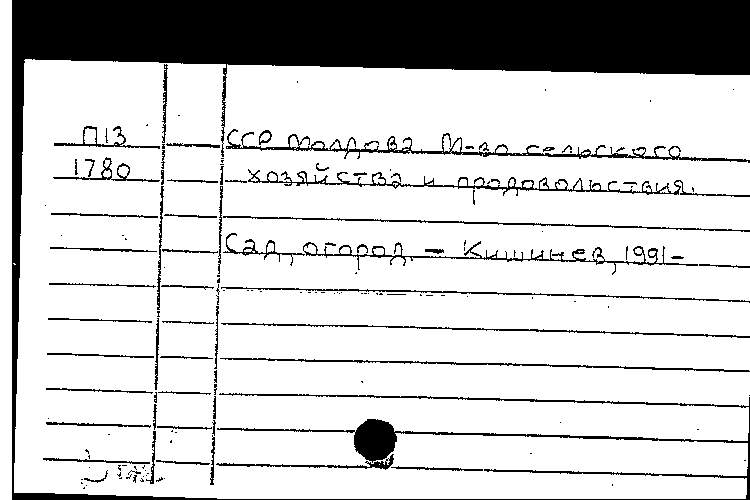 П13
1780
ССР Молдова М-во сельского
хозяйства и продовольствия.
Сад, огород. – Кишинев, 1991–